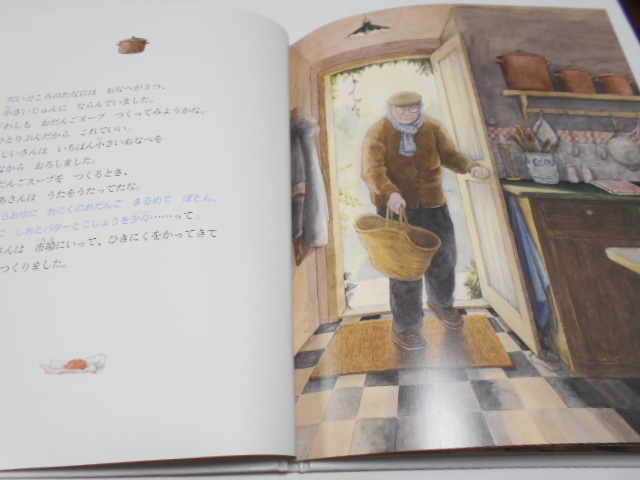 だいどころのたなには おなべが5つ、
小さいじゅんに ならんでいました。
わしも おだんごスープ つくってみようかな。
ひとりぶんだから これでいい」
じいさんは いちばん小さいおなべを
なから おろしました。
だんごスープを つくるとき、
あさんは うたをうたってたな。
らおゆに おにくのおだんご まるめて ぽとん。
に しおとバターとこしょうを少々……って」
さんは 市場にいって、ひきにくをかってきて
つくりました。